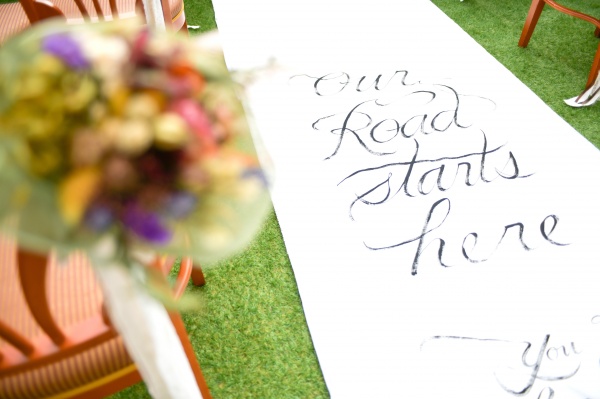 our
Road
starts
here
You